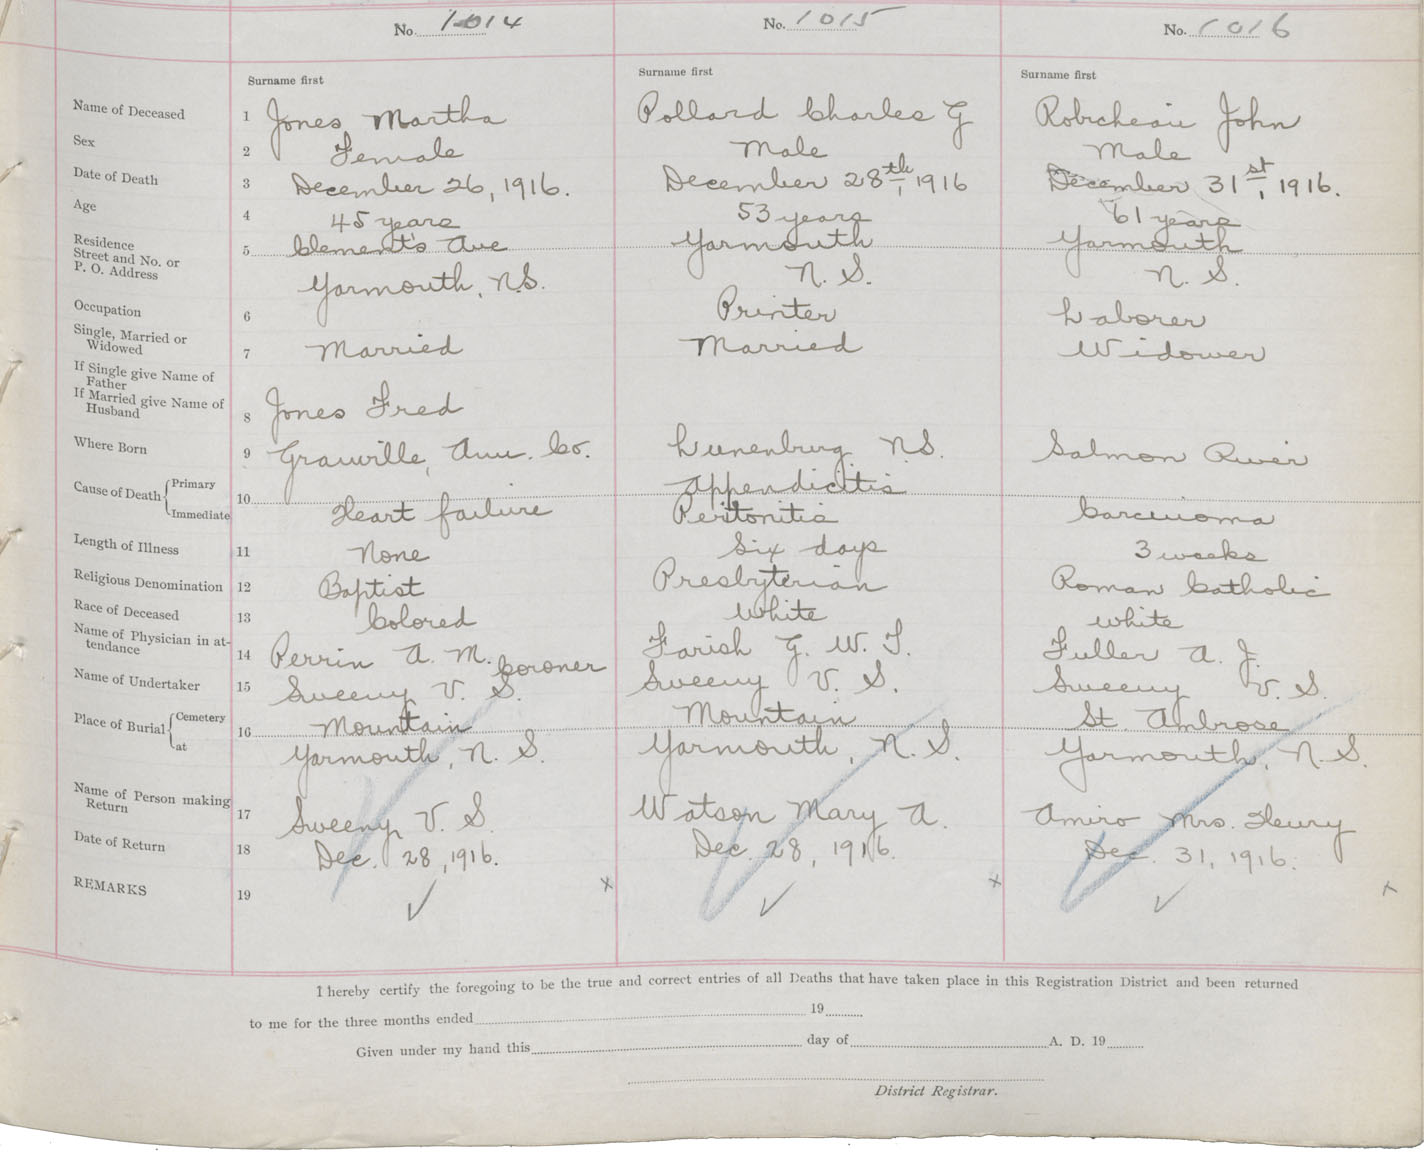 No. 1014
No. 1015
No. 1016
Surname first
Surname first
Surname first
Name of Deceased 1 Jones Martha
Pollard Charles G
Robicheau John
Sex 2 Female
Male
Male
Date of Death 3 December 26, 1916.
December 28th, 1916
December 31st, 1916.
Age 4 45 years
53 years
61 years
Residence
Street and No. or
P. O. Address
5 Clements Ave
Yarmouth, N.S.
Yarmouth
N. S.
Yarmouth
N. S.
Occupation 6
Printer
Laborer
Single, Married or
Widowed
7 Married
Married
Widower
If Single give Name of
Father
If Married give Name of
Husband
8 Jones Fred
Where Born 9 Granville, Ann. Co.
Lunenburg N.S.
Salmon River
Cause of Death { Primary
Immediate
10 Heart failure
Appendicitis
Peritonitis
Carcinoma
Length of Illness 11 None
Six days
3 weeks
Religious Denomination 12 Baptist
Presbyterian
Roman Catholic
Race of Deceased 13 Colored
White
White
Name of Physician in at-
tendance
14 Perrin A. M. Coroner
Farish G. W. T.
Fuller A. J.
Name of Undertaker 15 Sweeny V. S.
Sweeny V. S.
Sweeny V. S.
Place of Burial { Cemetery
at
16 Mountain
Yarmouth, N. S.
Mountain
Yarmouth, N. S.
St. Ambrose
Yarmouth, N. S.
Name of Person making
Return
17 Sweeny V. S.
Watson Mary A.
Amiro Mrs. Henry
Date of Return 18 Dec. 28, 1916.
Dec. 28, 1916.
Dec. 31, 1916.
REMARKS 19
I hereby certify the foregoing to be the true and correct entries of all Deaths that have taken place in this Registration District and been returned
to me for the three months ended 19
Given under my hand this day of A. D. 19
District Registrar.